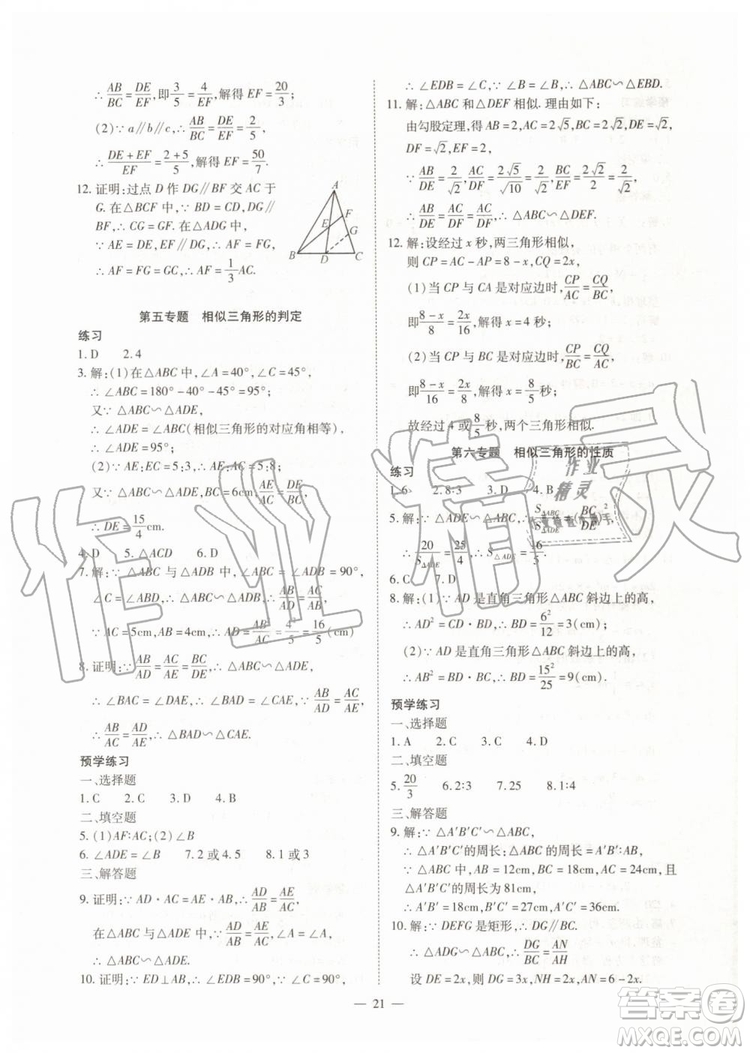 ∴ AB/BC = DE/EF, 即 3/5 = 4/EF, 解得 EF = 20/3;
(2)∵ a∥b∥c, ∴ AB/BC = DE/EF = 2/5,
∴ (DE+EF)/EF = (2+5)/5, 解得 EF = 50/7.
12. 证明:过点 D 作 DG∥BF 交 AC 于
G. 在△BCF 中, ∵ BD = CD, DG∥
BF, ∴ FG = GC. 在△ADG 中,
∵ AE = DE, EF∥DG, ∴ AF = FG,
∴ AF = FG = GC, ∴ AF = 1/3 AC.
A
F
E
G
B D C
第五专题 相似三角形的判定
练习
1. D 2. 4
3. 解:(1)在△ABC 中, ∠A = 40°, ∠C = 45°,
∴ ∠ABC = 180° - 40° - 45° = 95°;
又∵ △ABC∽△ADE,
∴ ∠ADE = ∠ABC(相似三角形的对应角相等),
∴ ∠ADE = 95°;
AB = 8cm, BC = 6cm,
∴ DE = 15/4 cm.
4. D 5. △ACD 6. D
7. 解:∵ △ABC 与△ADB 中, ∠ABC = ∠ADB = 90°,
∠C = ∠ABD, ∴ △ABC∽△ADB,
∵ AC = 5cm, AB = 4cm, ∴ AD = 4×4/5 = 16/5 (cm)
8. 证明:∵ AB/AD = BC/DE = AC/AE, ∴ △ABC∽△ADE,
∴ ∠BAC = ∠DAE, ∴ ∠BAD = ∠CAE, ∵ AB/AD = AC/AE,
∴ AB/AC = AD/AE, ∴ △BAD∽△CAE.
预学练习
一、选择题
1. C 2. C 3. D 4. B
二、填空题
5. (1)AF:AC; (2)∠B
6. ∠ADE = ∠B 7. 2 或 4. 5 8. 1 或 3
三、解答题
9. 证明:∵ AD·AC = AE·AB, ∴ AD/AB = AE/AC
在△ABC 与△ADE 中, ∵ AD/AB = AE/AC, ∠A = ∠A,
∴ △ABC∽△ADE.
10. 证明:∵ ED⊥AB, ∴ ∠EDB = 90°, ∵ ∠C = 90°,
∴ ∠EDB = ∠C, ∵ ∠B = ∠B, ∴ △ABC∽△EBD.
11. 解:△ABC 和△DEF 相似. 理由如下:
由勾股定理, 得 AB = 2, AC = 2√5, DE = √2,
DF = √2, EF = 2,
∵ AB/DE = 2/√2 = 2√5/√10 = 2√2/2 = √2,
∴ △ABC∽△DEF.
12. 解:设经过 x 秒, 两三角形相似,
则 CP = AC - AP = 8 - x, CQ = 2x,
(1)当 CP 与 CA 是对应边时, CP/AC = CQ/BC,
即 (8-x)/8 = 2x/16, 解得 x = 4 秒;
(2)当 CP 与 BC 是对应边时, CP/BC = CQ/AC,
即 (8-x)/16 = 2x/8, 解得 x = 8/5 秒;
故经过 4 或 8/5 秒, 两个三角形相似.
第六专题 相似三角形的性质
练习
1. 6 2. 8:3 3. D 4. B
∴ 20/S△ADE = 25/4, ∴ S△ADE = 16/5.
6. C 7. D
8. 解:(1)∵ AD 是直角三角形 ABC 斜边上的高,
∴ AD² = BD·CD, ∴ CD = 6²/12 = 3(cm);
(2)∵ AD 是直角三角形 ABC 斜边上的高,
∴ AB² = BD·BC, ∴ BD = 15²/25 = 9(cm).
预学练习
一、选择题
1. A 2. C 3. C 4. D
二、填空题
5. 20/3 6. 2:3 7. 25 8. 1:4
三、解答题
9. 解:∵ △A′B′C′∽△ABC,
∴ △A′B′C′的周长:△ABC 的周长 = A′B′:AB,
∵ △ABC 中, AB = 12cm, BC = 18cm, AC = 24cm,
△A′B′C′的周长为 81cm,
∴ A′B′ = 18cm, B′C′ = 27cm, A′C′ = 36cm.
10. 解:∵ DEFG 是矩形, ∴ DG∥BC.
∴ △ADG∽△ABC, ∴ DG/BC = AN/AH
设 DE = 2x, 则 DG = 3x, NH = 2x, AN = 6 - 2x.
— 21 —
作业精灵
作业
精灵
答案圈
MXQE.COM